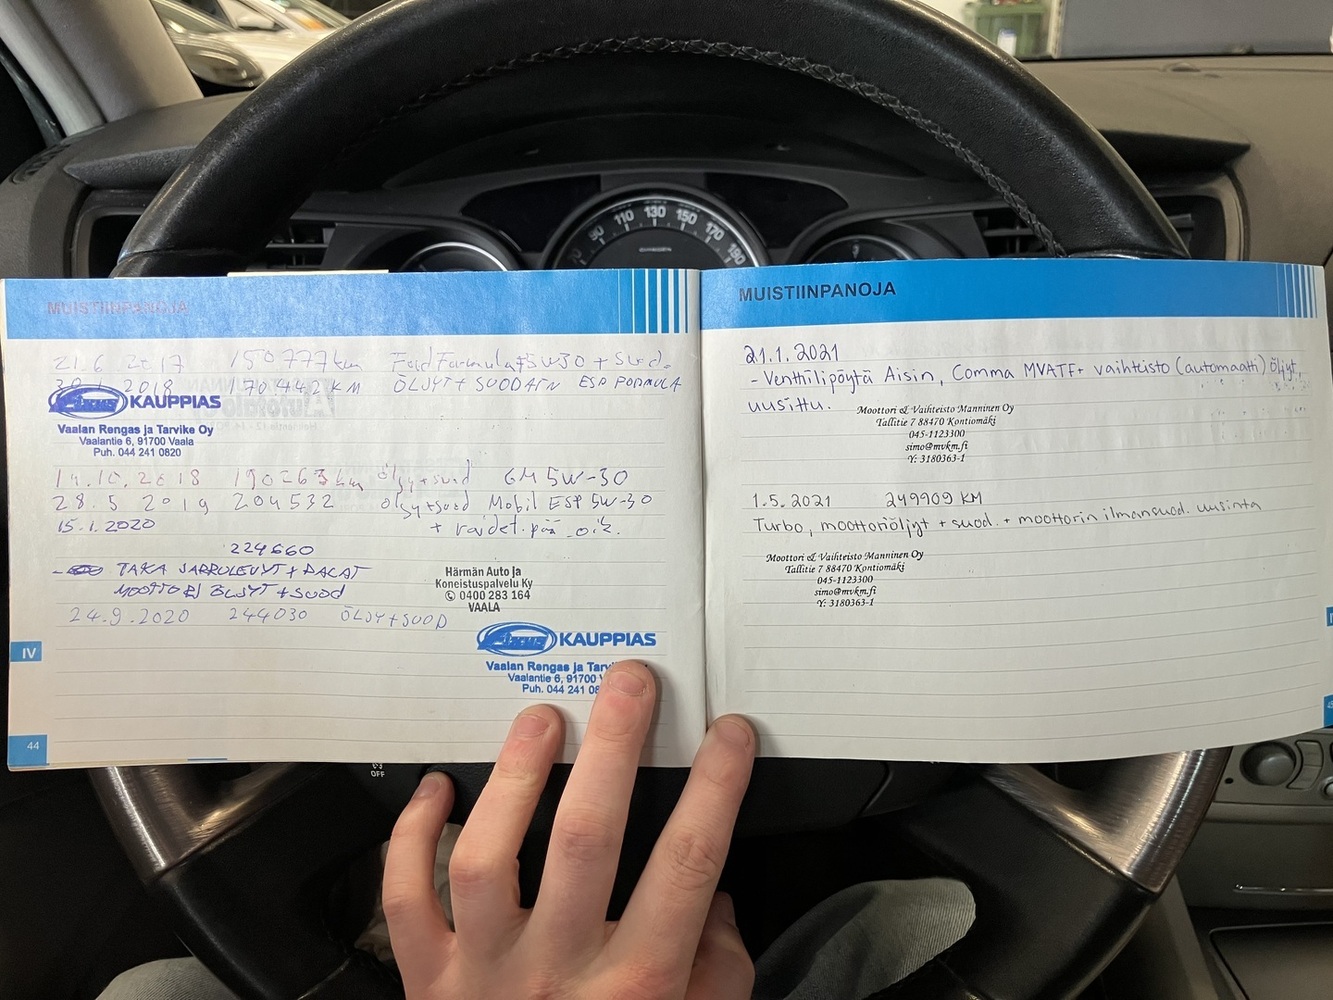 50 110 130 150 170 190
MUISTIINPANOJA
21.6 2017 150777km Ford Formula 5W30 + suod.
30.1.2018 170442KM ÖLJYT + SUODATIN ESP FORMULA
KAUPPIAS
Vaalan Rengas ja Tarvike Oy
Vaalantie 6, 91700 Vaala
Puh. 044 241 0820
14.10.2018 190263 km öljy+suod GM 5W-30
28.5 2019 204532 öljy+suod Mobil ESP 5W-30
15.1.2020 + raidet.pää oik.
224660
TAKA JARRULEVYT + PALAT
MOOTTORI ÖLJYT + SUOD
Härmän Auto ja
Koneistuspalvelu Ky
0400 283 164
VAALA
24.9.2020 244030 ÖLJY+SUOD
KAUPPIAS
Vaalan Rengas ja Tarvi
Vaalantie 6, 91700
Puh. 044 241 08
IV
44
MUISTIINPANOJA
21.1.2021
- Venttiilipöytä Aisin, Comma MVATF+ vaihteisto (automaatti) öljyt,
uusittu.
Moottori & Vaihteisto Manninen Oy
Tallitie 7 88470 Kontiomäki
045-1123300
simo@mvkm.fi
Y: 3180363-1
1.5.2021 249909 KM
Turbo, moottoriöljyt + suod. + moottorin ilmansuod. uusinta
Moottori & Vaihteisto Manninen Oy
Tallitie 7 88470 Kontiomäki
045-1123300
simo@mvkm.fi
Y: 3180363-1
OFF